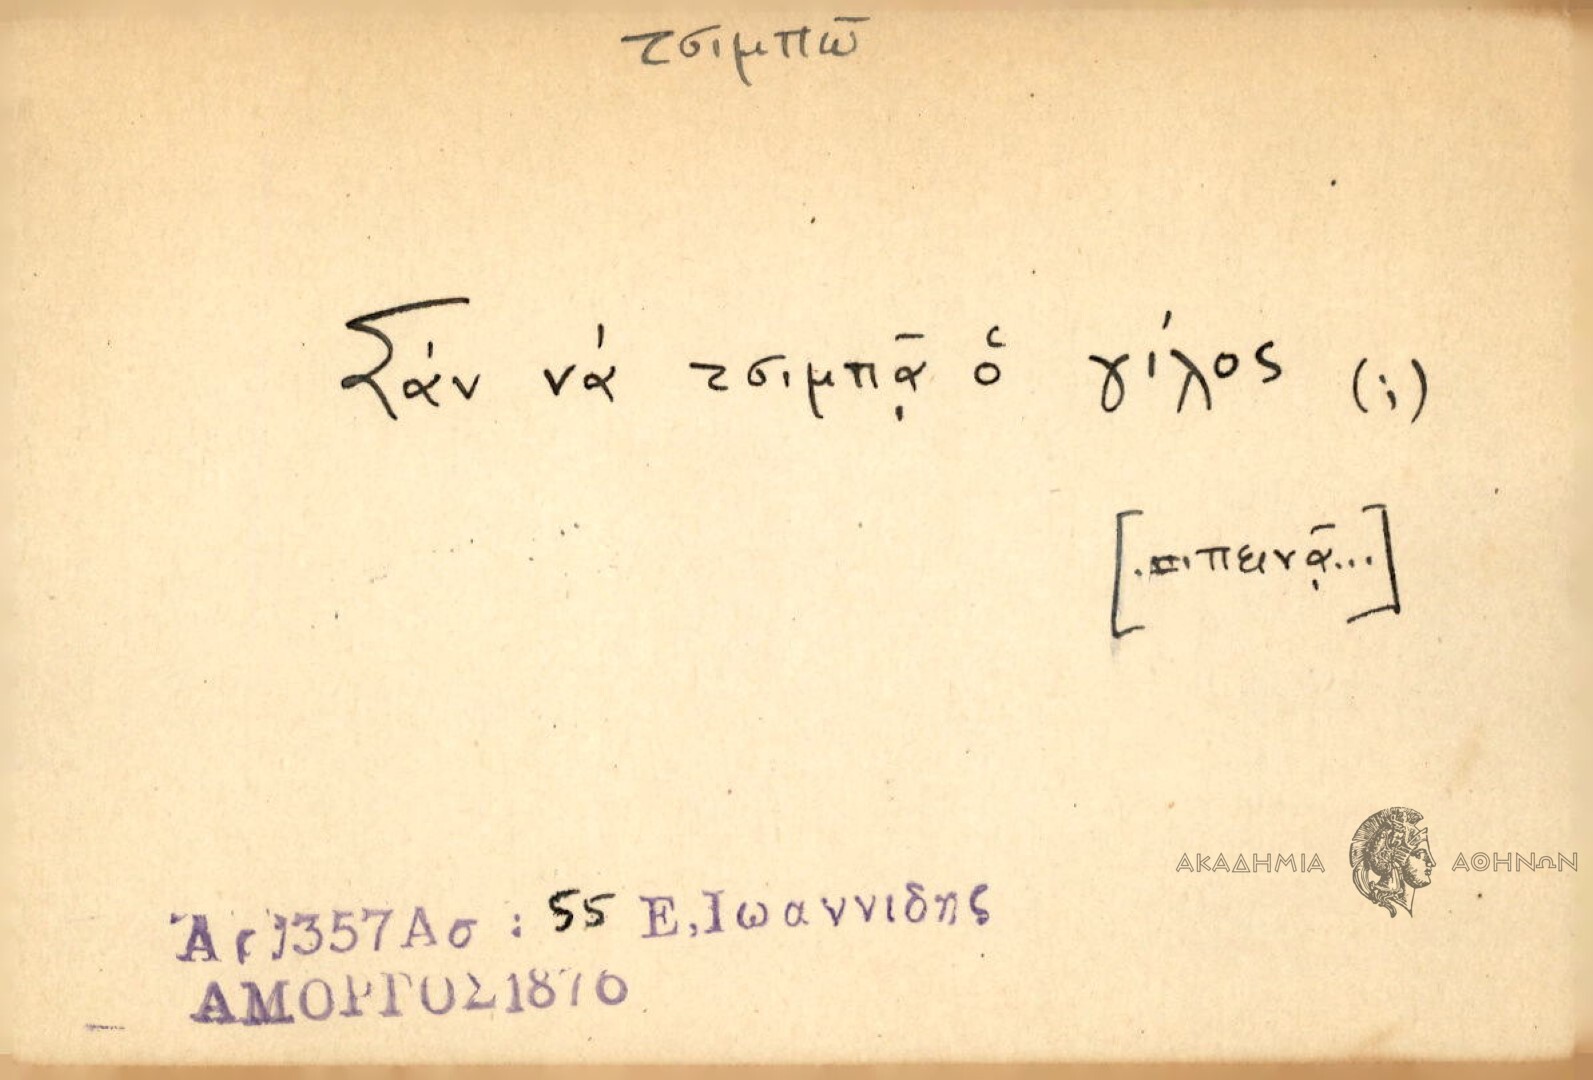 τσιμπῶ
Σάν νά τσιμπᾷ ὁ γίλος (;)
[...πεινᾷ...]
ΑΚΑΔΗΜΙΑ ΑΘΗΝΩΝ
Ἀρ 1357 Ασ : 55 Ε, Ιωαννιδης
ΑΜΟΡΓΟΣ 1876